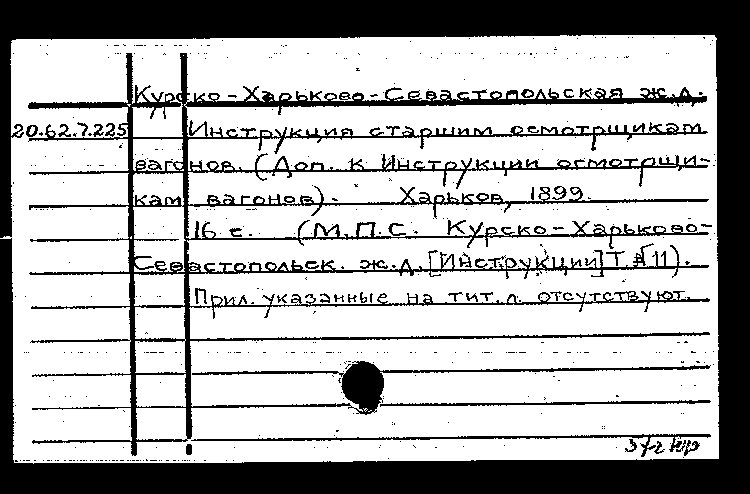 Курско-Харьково-Севастопольская ж.д.
20.62.7.225 Инструкция старшим осмотрщикам
вагонов. (Доп. к Инструкции осмотрщи-
кам вагонов). Харьков, 1899.
16 с. (М.П.С. Курско-Харьково-
Севастопольск. ж.д. [Инструкции] Т №11).
Прил. указанные на тит.л. отсутствуют.